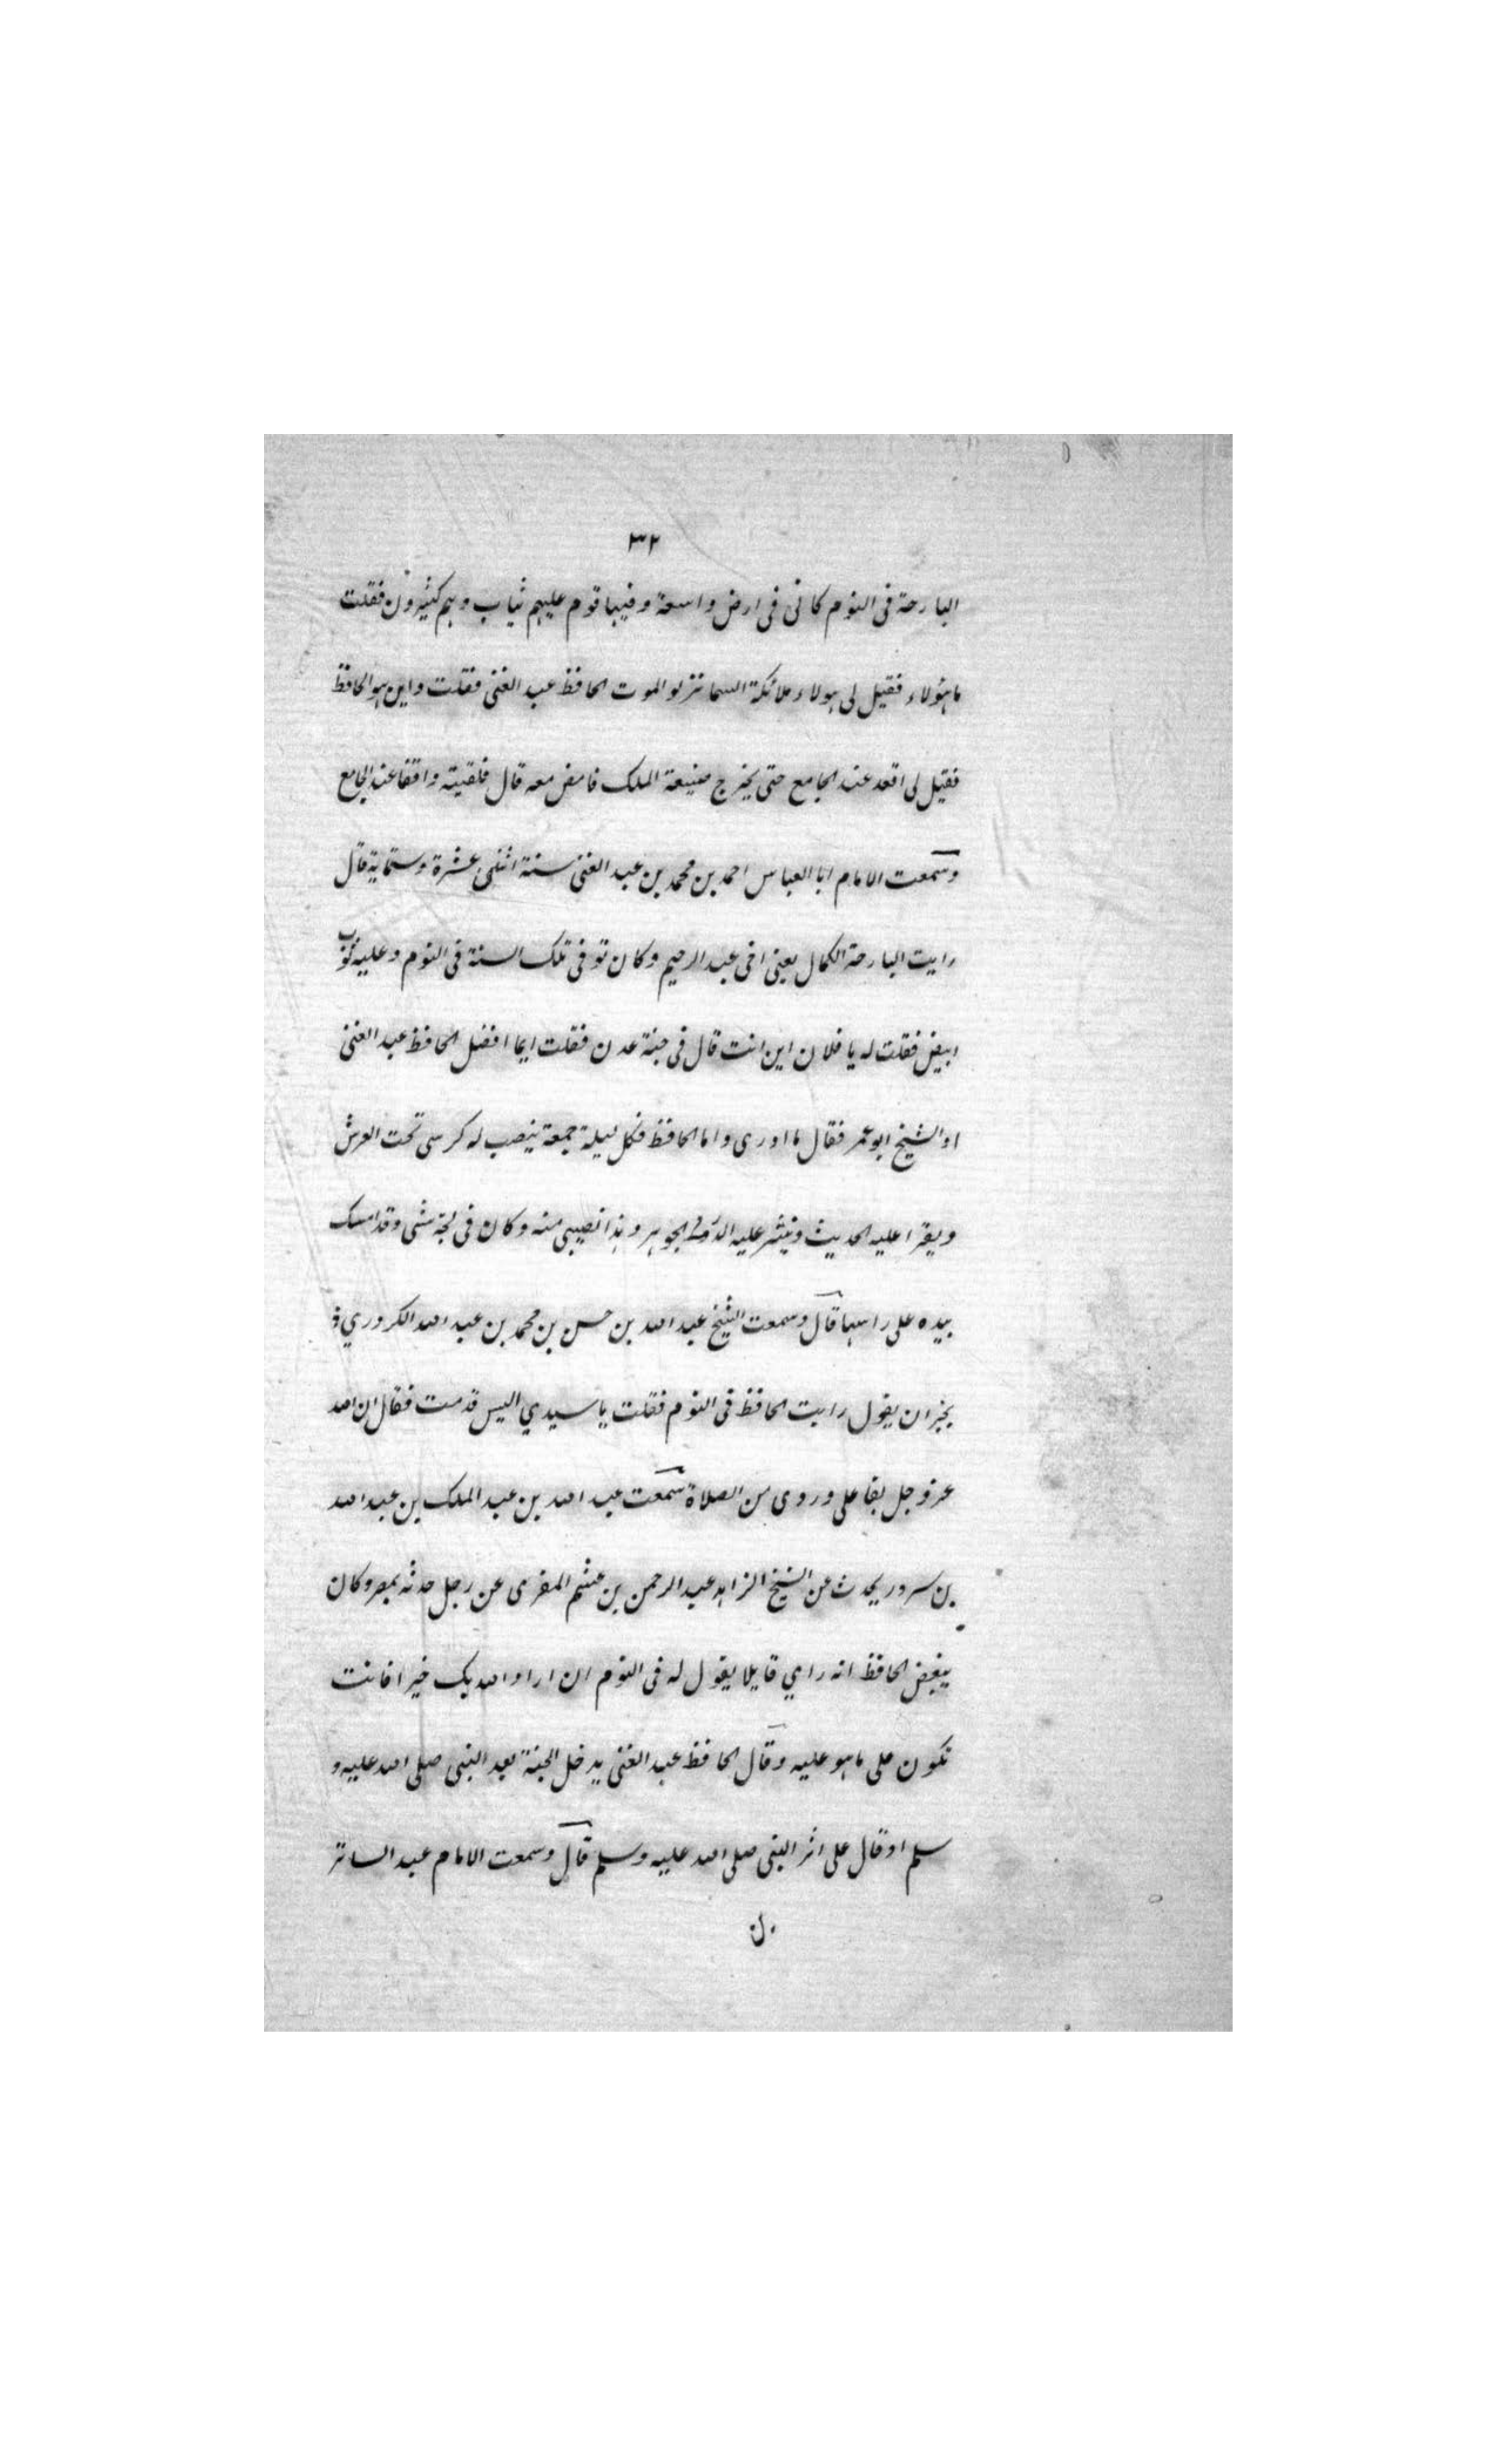 ٣٢
البارحة فى النوم كانى فى ارض واسعة وفيها قوم عليهم ثياب وهم كثيرون فقلت
ما هؤلاء فقيل لى هولاء ملائكة السما نزلو الموت الحافظ عبد الغنى فقلت واين هو الحافظ
فقيل لى اقعد عند الجامع حتى يخرج صنيعة الملك فامض معه قال فلقيته واقفا عند الجامع
وسمعت الامام ابا العباس احمد بن محمد بن عبد الغنى سنة اثنى عشرة وستماية قال
رايت البارحة الكمال يعنى اخى عبد الرحيم وكان توفى تلك السنة فى النوم وعليه ثوب
ابيض فقلت له يا فلان اين انت قال فى جنة عدن فقلت ايما افضل الحافظ عبد الغنى
او الشيخ ابو عمر فقال ما ادرى واما الحافظ فكل ليلة جمعة ينصب له كرسى تحت العرش
ويقرا عليه الحديث وينثر عليه الدر والجوهر وهذا نصيبى منه وكان فى كمه شى وقد امسك
بيده على راسها قال وسمعت الشيخ عبد الله بن حسن بن محمد بن عبد الله الكروري
بحران يقول رايت الحافظ فى النوم فقلت يا سيدي اليس قد مت فقال ان الله
عز وجل بقا على وردى من الصلاة سمعت عبد الله بن عبد الملك بن عبد الله
بن سرور يحدث عن الشيخ الزاهد عبد الرحمن بن عشم المقرى عن رجل حدثه بمصر وكان
يبغض الحافظ انه راي قايلا يقول له فى النوم ان اراد الله بك خيرا فانت
تكون على ما هو عليه وقال الحافظ عبد الغنى يدخل الجنة بعد النبى صلى الله عليه و
سلم او قال على اثر النبى صلى الله عليه وسلم قال وسمعت الامام عبد الساتر